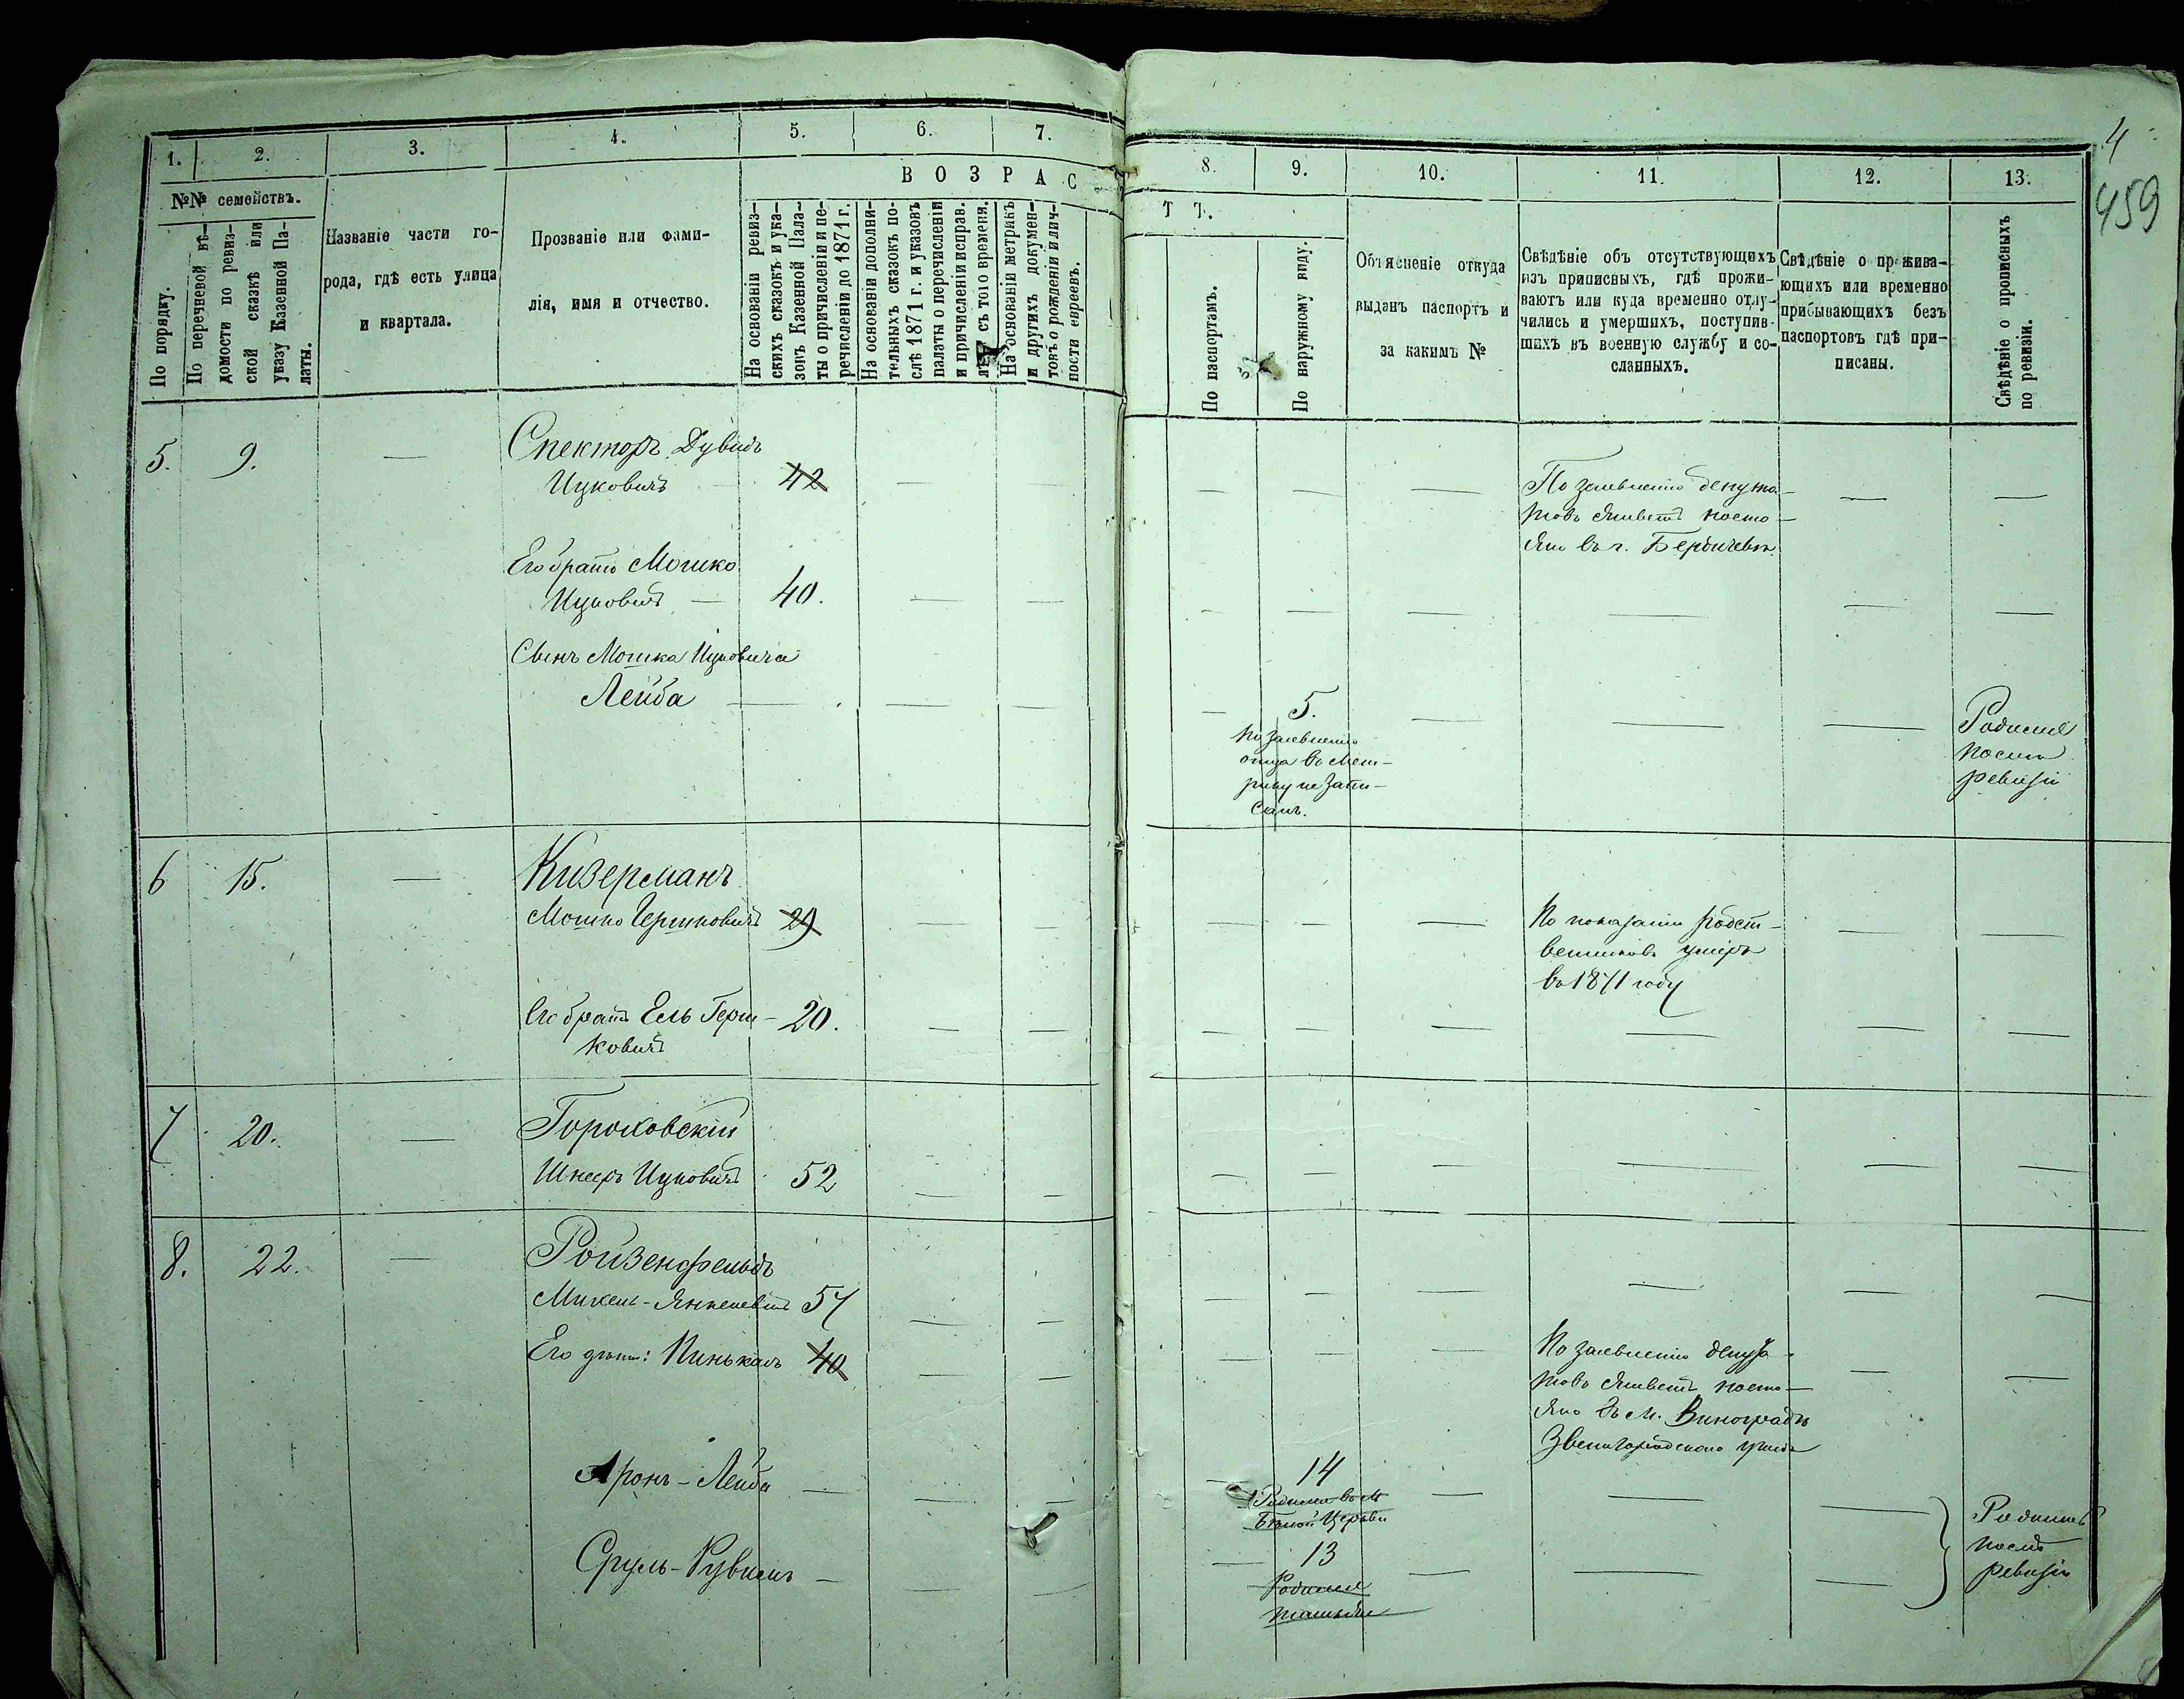 4
459
1.
2.
3.
4.
5.
6.
7.
8.
9.
10.
11.
12.
13.
№№ семействъ.
По порядку.
По перечневой вѣ-
домости по ревиз-
ской сказкѣ или
указу Казенной Па-
латы.
Названіе части го-
рода, гдѣ есть улица
и квартала.
Прозваніе или фами-
лія, имя и отчество.
ВОЗРАС
ТЪ.
На основаніи ревиз-
скихъ сказокъ и ука-
зокъ Казенной Пала-
ты о причисленіи и пе-
речисленіи до 1871 г.
На основаніи дополни-
тельныхъ сказокъ по-
слѣ 1871 г. и указовъ
палаты о перечисленіи
и причисленіи исправ.
съ того времени.
На основаніи метрикъ
и другихъ докумен-
товъ о рожденіи и лич-
ности евреевъ.
По паспортамъ.
По наружному виду.
Объясненіе откуда
выданъ паспортъ и
за какимъ №
Свѣдѣніе объ отсутствующихъ
изъ приписныхъ, гдѣ прожи-
ваютъ или куда временно отлу-
чились и умершихъ, поступив-
шихъ въ военную службу и со-
сланныхъ.
Свѣдѣніе о прожива-
ющихъ или временно
прибывающихъ безъ
паспортовъ гдѣ при-
писаны.
Свѣдѣніе о прописныхъ
по ревизіи.
5. 9. — Спекторъ Дувидъ
Ицковичъ — 42
По заявленію депута-
товъ живетъ посто-
яно въ г. Бердичевѣ
Его братъ Мошко
Ицковичъ — 40.
Сынъ Мошка Ицковича
Лейба
5.
По заявленію
отца въ мет-
рику не запи-
санъ.
Родился
послѣ
ревизіи
6 15. — Кизерманъ
Мошко Гершковичъ 29
По показанію родст-
венниковъ умеръ
въ 1871 году
Его братъ Ель Герш- 20.
ковичъ
7 20. — Гороховскій
Шнеръ Ицковичъ 52
8. 22. — Ройзенфельдъ
Михель-Янкелевичъ 57
Его дѣти: Пинькасъ 40
По заявленію депута-
товъ живетъ посто-
яно въ м. Виноградѣ
Звенигородскаго уѣзда
Аронъ-Лейба
14
Родился въ м
Бѣлой Церкви
Сруль-Рувинъ
13
Родился
тамъ же
Родились
послѣ
ревизіи